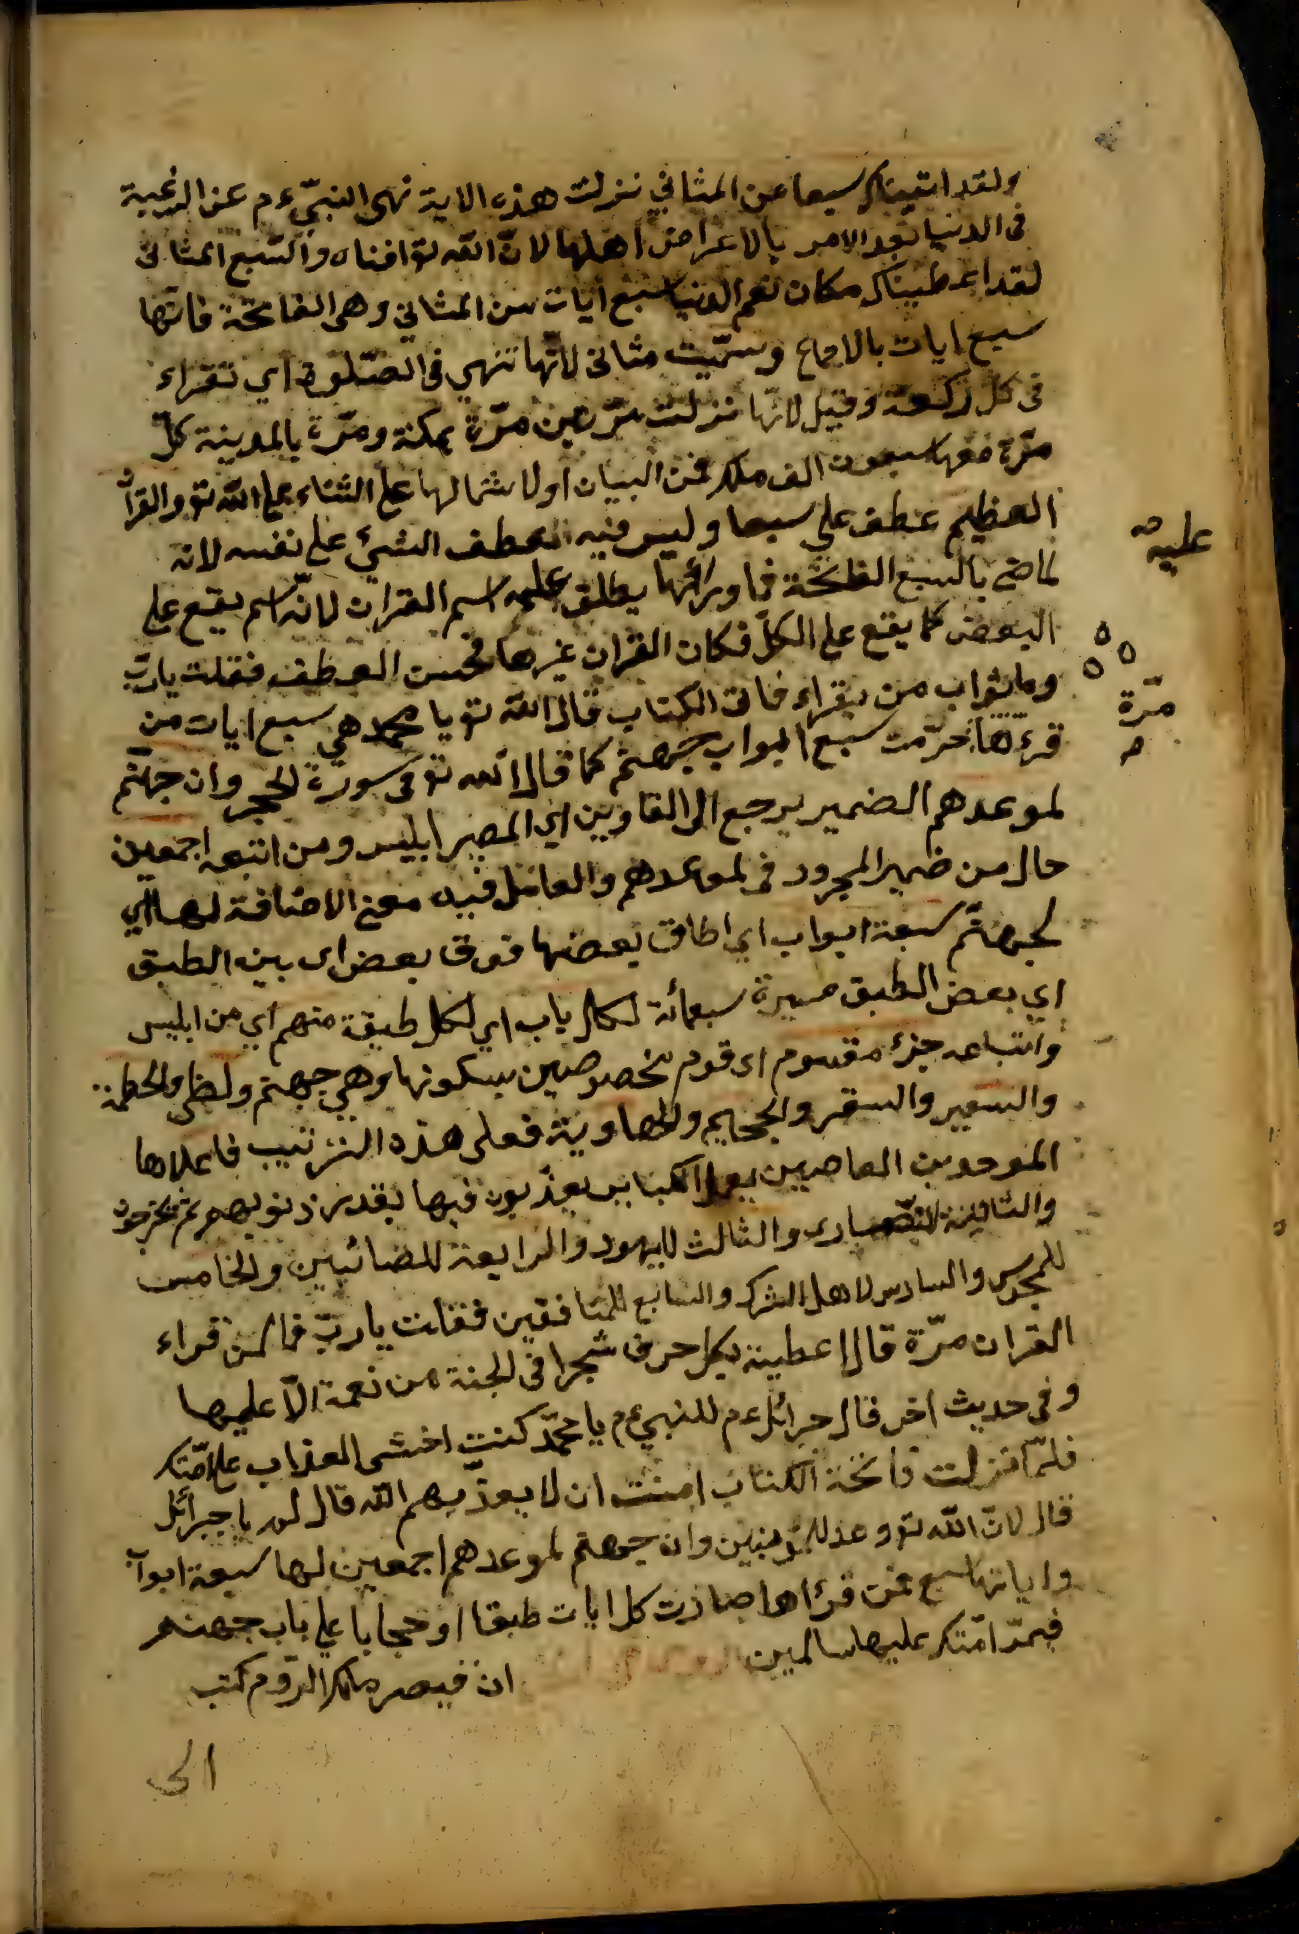 ولقد اتيناك سبعا من المثاني نزلت هذه الاية نهى النبي ءم عن الرغبة
فى الدنيا بعد الامر بالاعراض اهلها لان الله تو افناه والسبع المثانى
لقد اعطيناك مكان نعم الدنيا سبع ايات من المثاني وهى الفاتحة فانها
سبع ايات بالاجماع وسميت مثانى لانها تنهي فى الصلوة اي تقراء
فى كل ركعة وقيل لانها نزلت مرتين مرة بمكة ومرة بالمدينة كل
مرة معها سبعون الف ملك فمن البيان او لاشتمالها على الثناء على الله تو والقرآن
العظيم عطف على سبعا وليس فيه العطف الشئ على نفسه لانه
لما خص بالسبع الفاتحة فما ورائها يطلق عليه اسم القران لانه اسم يقع على
البعض كما يقع على الكل فكان القران غيرها فحسن العطف فقلت يارب
وما ثواب من يقراء فاتحة الكتاب قال الله تو يا محمد هي سبع ايات من
قرءها حرمت سبع ابواب جهنم كما قال الله تو فى سورة الحجر وان جهنم
لموعدهم الضمير يرجع الى الغاوين اي المصير ابليس ومن اتبعه اجمعين
حال من ضمير المجرور فى لموعدهم والعامل فيه معنى الاضافة لها اي
لجهنم سبعة ابواب اي اطاق بعضها فوق بعض اى بين الطبق
اي بعض الطبق مسيرة سبعمائة لكل باب اي لكل طبقة منهم اي من ابليس
واتباعه جزء مقسوم اى قوم مخصوصين يسكونها وهي جهنم ولظى والحطمة
والسعير والسقر والجحيم والهاوية فعلى هذه الترتيب فاعلاها
الموحدين العاصين الكبائر يعذبون فيها بقدر ذنوبهم ثم يخرجون
والثانية للنصارى والثالث لليهود والرابعة للصائبين والخامس
للمجوس والسادس لاهل الشرك والسابع للمنافقين فقلت يارب فما لمن قراء
القران مرة قال اعطيته بكل حرف شجرا فى الجنة من نعمة الا عليها
وفى حديث اخر قال جبرائل ءم للنبي ءم يا محمد كنت اخشى العذاب على امتك
فلما نزلت فاتحة الكتاب امنت ان لا يعذبهم الله قال لم يا جبرائل
قال لان الله تو وعد للمؤمنين وان جهنم لموعدهم اجمعين لها سبعة ابواب
واياتها سبع فمن قرءاها صارت كل ايات طبقا او حجابا على باب جهنم
فيمر امتك عليها سالمين
ان قيصر ملك الروم كتب
الى
عليه
مرة